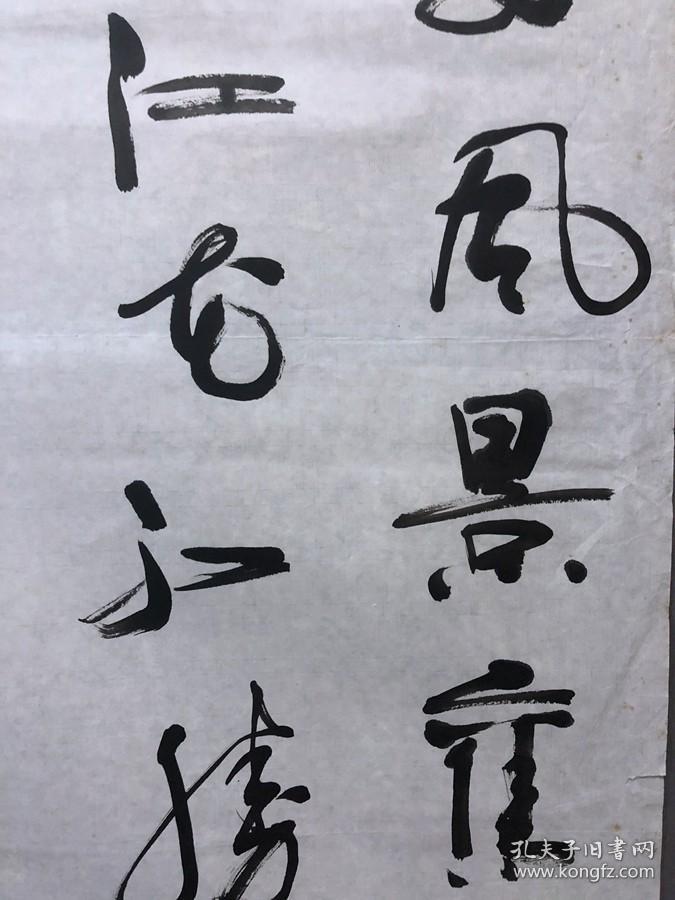 風景舊
江花紅勝
孔夫子旧書网
www.kongfz.com